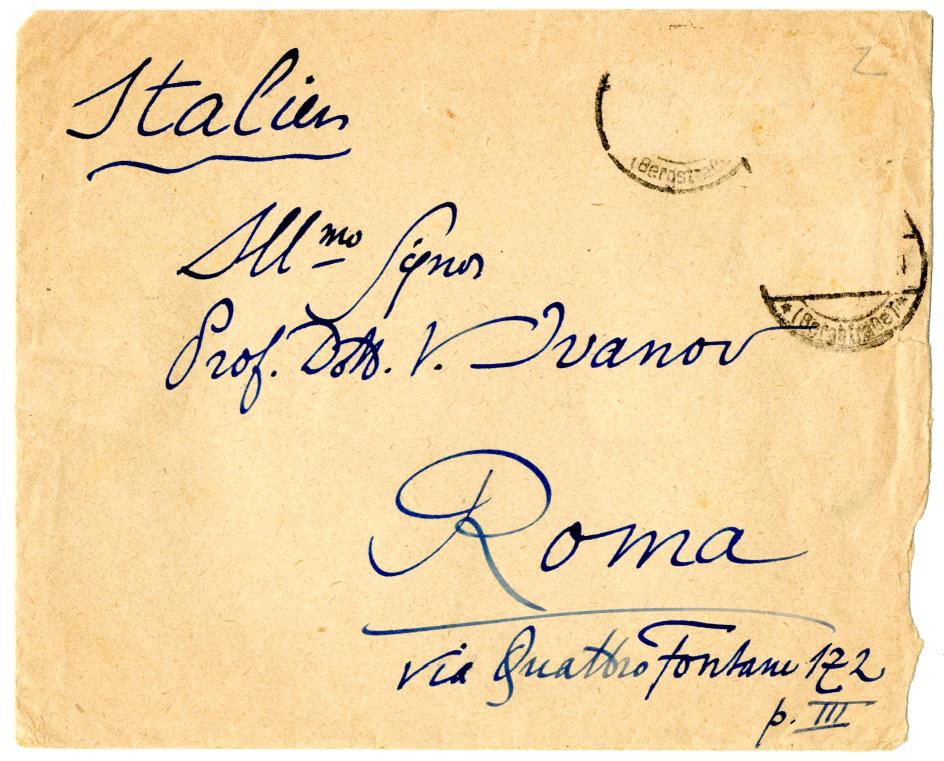 Italien
Z
(Bergstraße)
Ill mo Signor
(Bergstraße)
Prof. Dott. V. Ivanov
Roma
via Quattro Fontane 172
p. III